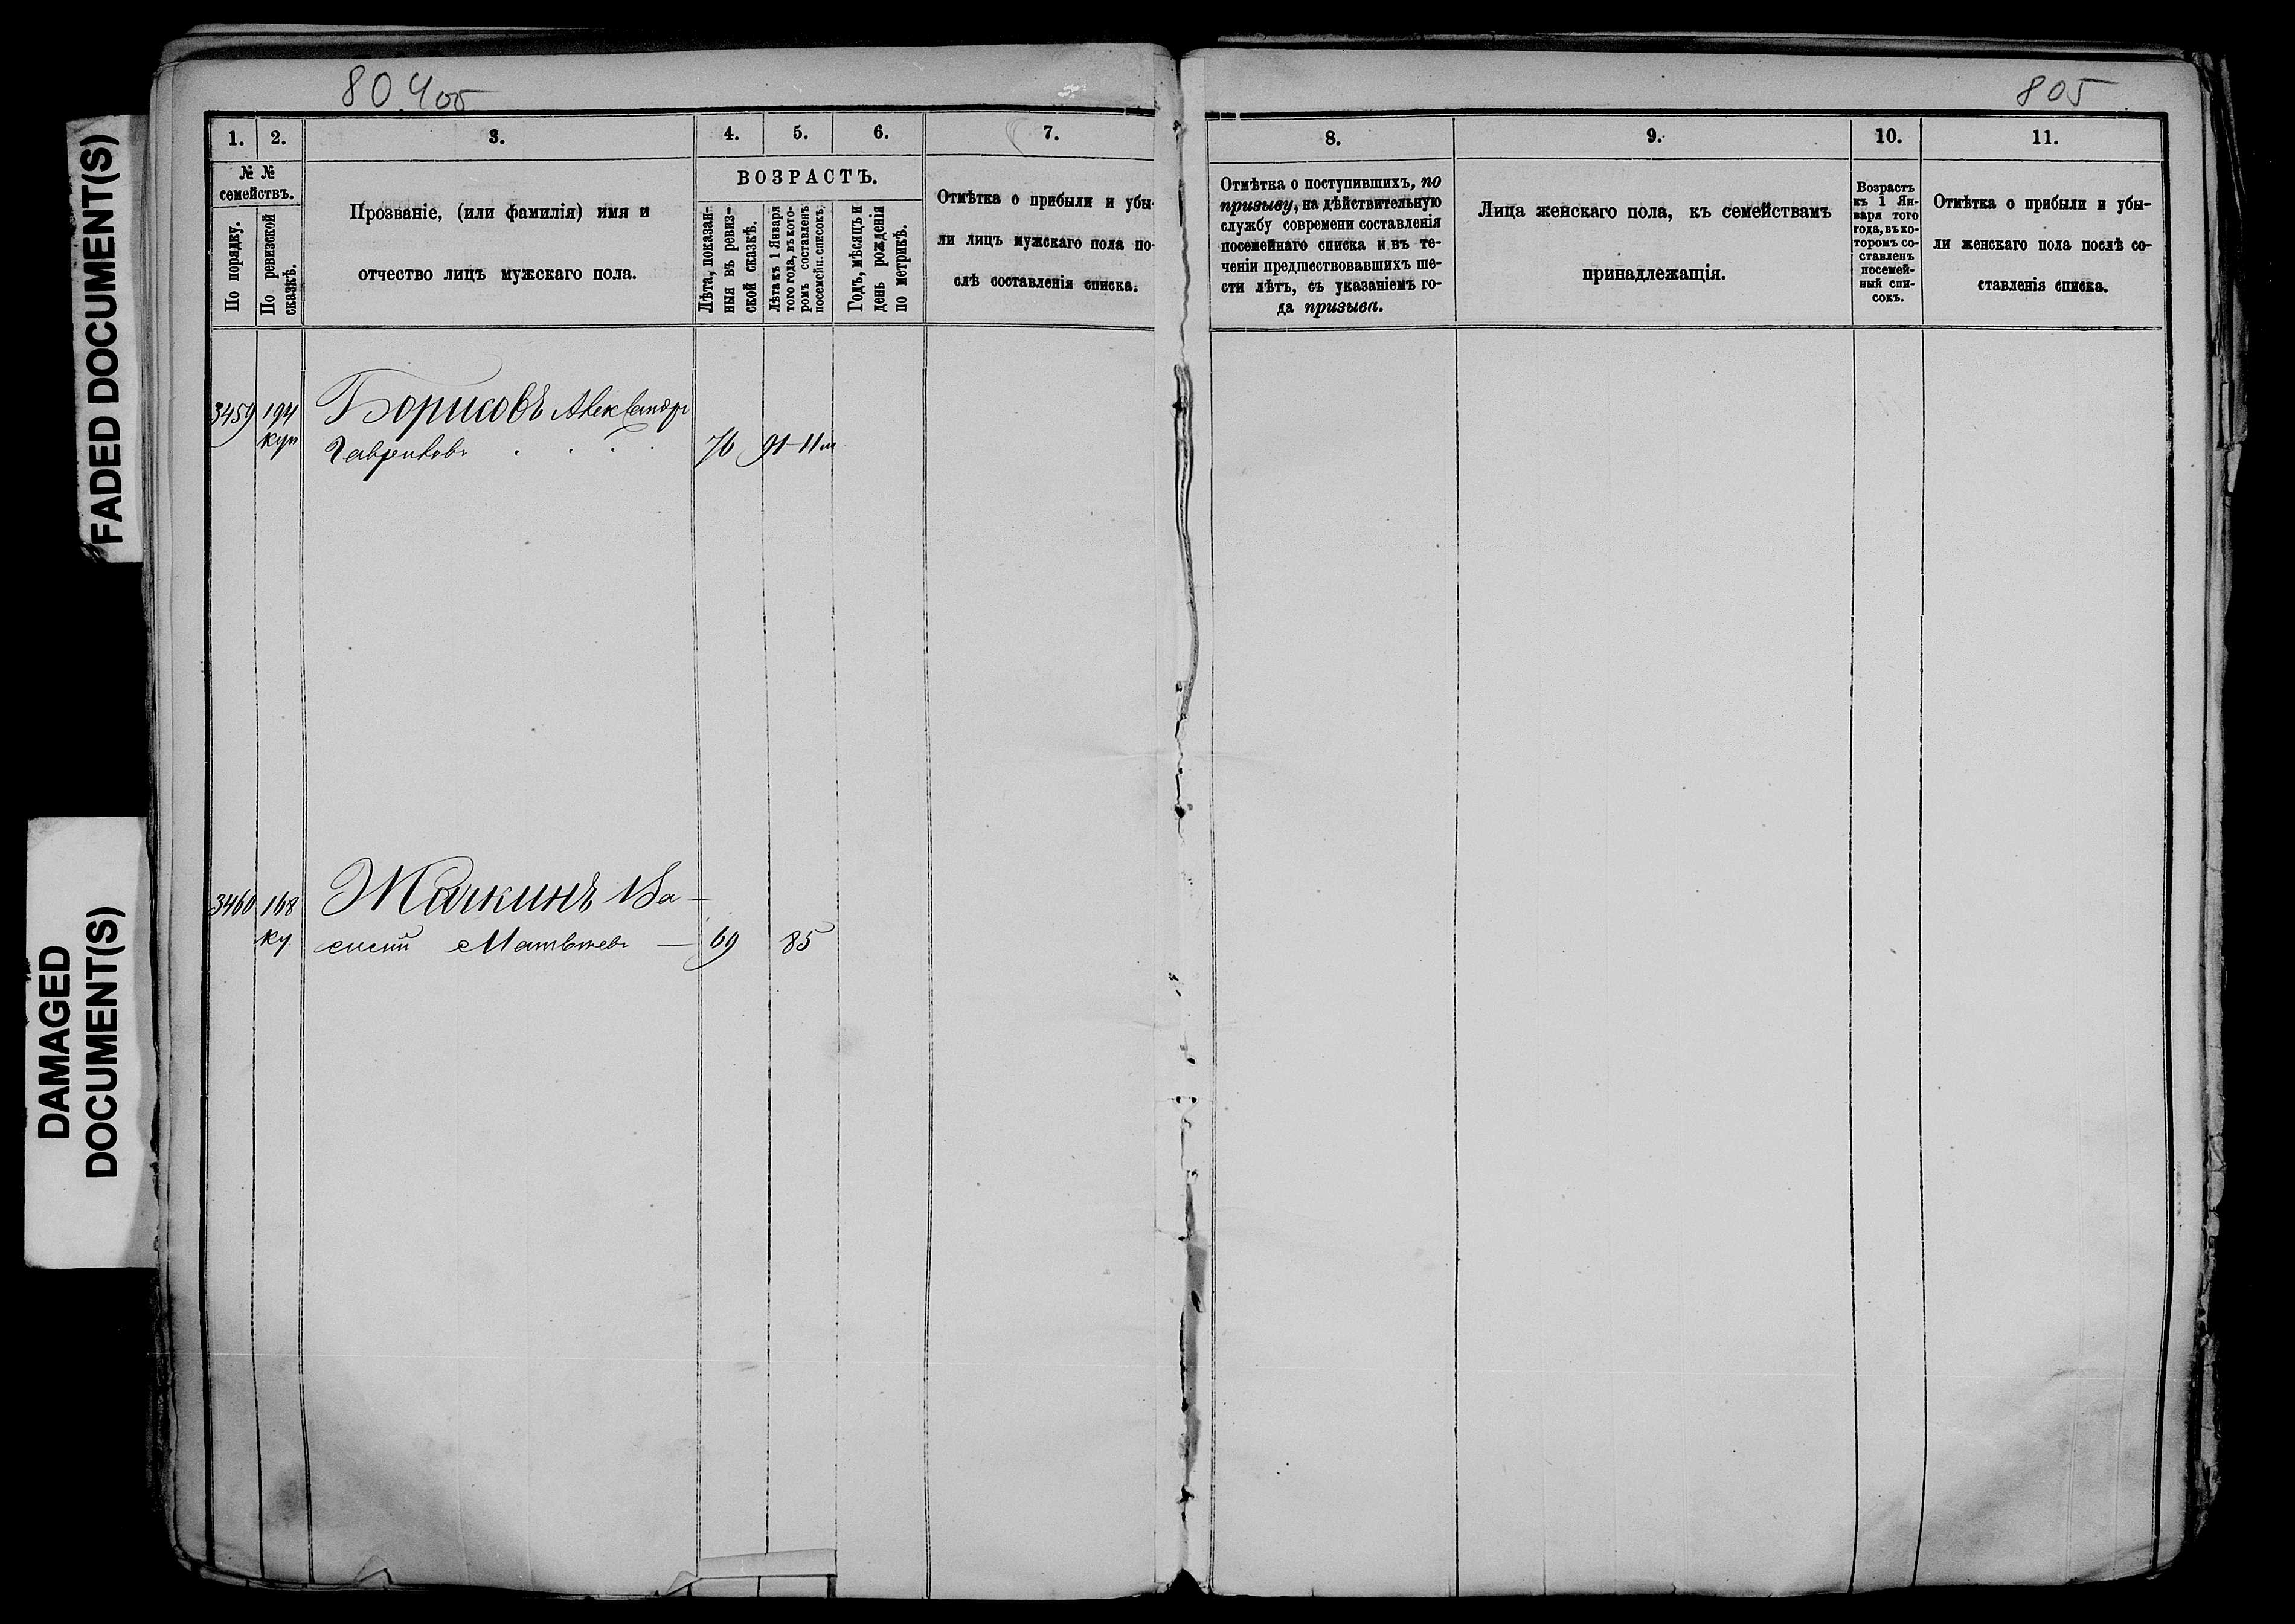 FADED DOCUMENT(S)
DAMAGED
DOCUMENT(S)
804об
1. 2. 3. 4. 5. 6. 7.
№ №
семействъ.
По порядку.
По ревизской
сказкѣ.
Прозваніе, (или фамилія) имя и
отчество лицъ мужскаго пола.
ВОЗРАСТЪ.
Лѣта, показан-
ныя въ ревиз-
ской сказкѣ.
Лѣта къ 1 Января
того года, въ кото-
ромъ составленъ
посемейн. списокъ.
Годъ, мѣсяцъ и
день рожденія
по метрикѣ.
Отмѣтка о прибыли и убы-
ли лицъ мужскаго пола по-
слѣ составленія списка.
3459 194 Борисовъ Александръ
куп 76 91-11м
3460 168 Жачкинъ Ва-
ку силій Матвѣевъ — 69 85
805
8. 9. 10. 11.
Отмѣтка о поступившихъ, по
призыву, на дѣйствительную
службу современи составленія
посемейнаго списка и въ те-
ченіи предшествовавшихъ ше-
сти лѣтъ, съ указаніемъ го-
да призыва.
Лица женскаго пола, къ семействамъ
принадлежащія.
Возрастъ
къ 1 Ян-
варя того
года, въ ко-
торомъ со-
ставленъ
посемей-
ный спи-
сокъ.
Отмѣтка о прибыли и убы-
ли женскаго пола послѣ со-
ставленія списка.